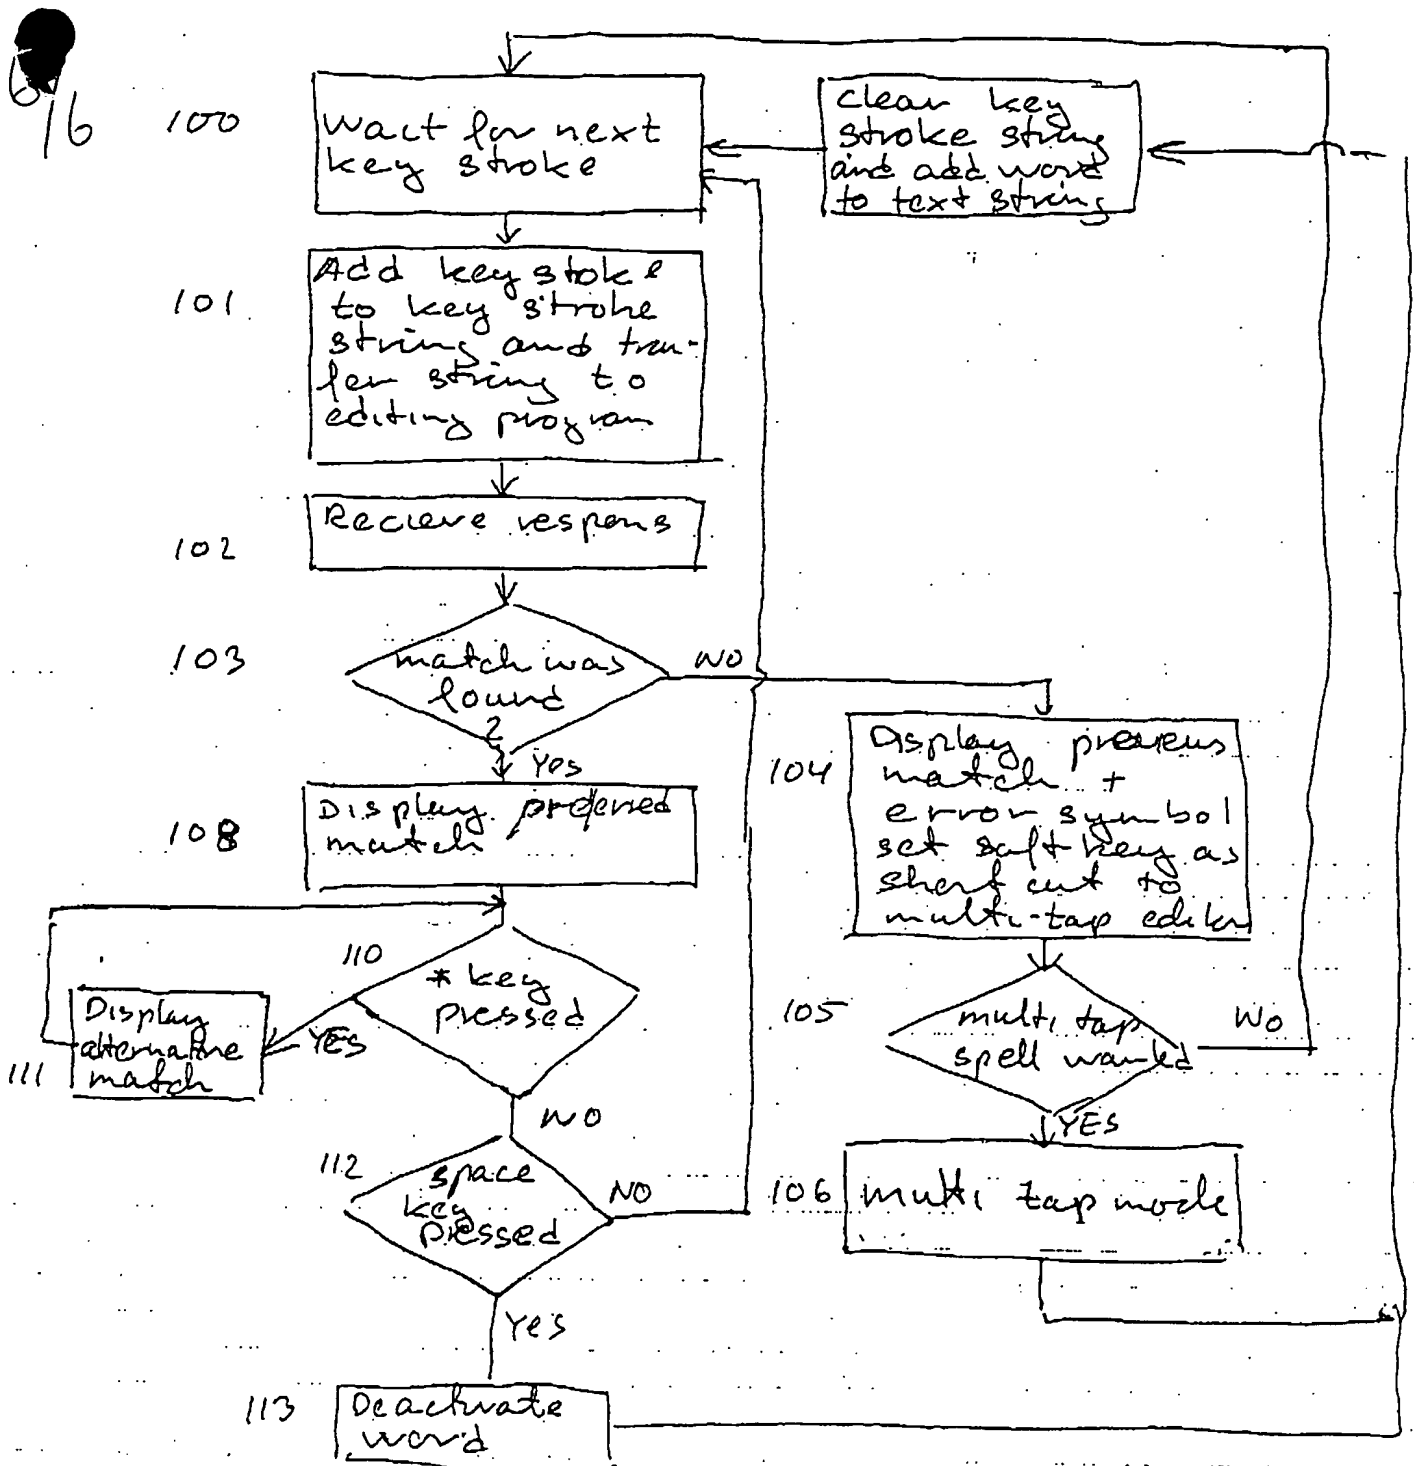 16
100
Wait for next
key stroke
clear key
stroke string
and add word
to text string
101
Add key stoke
to key stroke
string and tran-
fer string to
editing program
102
Recieve respons
103
match was
found
?
NO
Yes
104
Display previeus
match +
error symbol
set soft key as
short cut to
multi-tap editor
108
Display preferred
match
110
* key
pressed
YES
NO
111
Display
alternative
match
105
multi tap
spell wanted
NO
YES
112
space
key
pressed
NO
Yes
106
multi tap mode
113
Deactivate
word